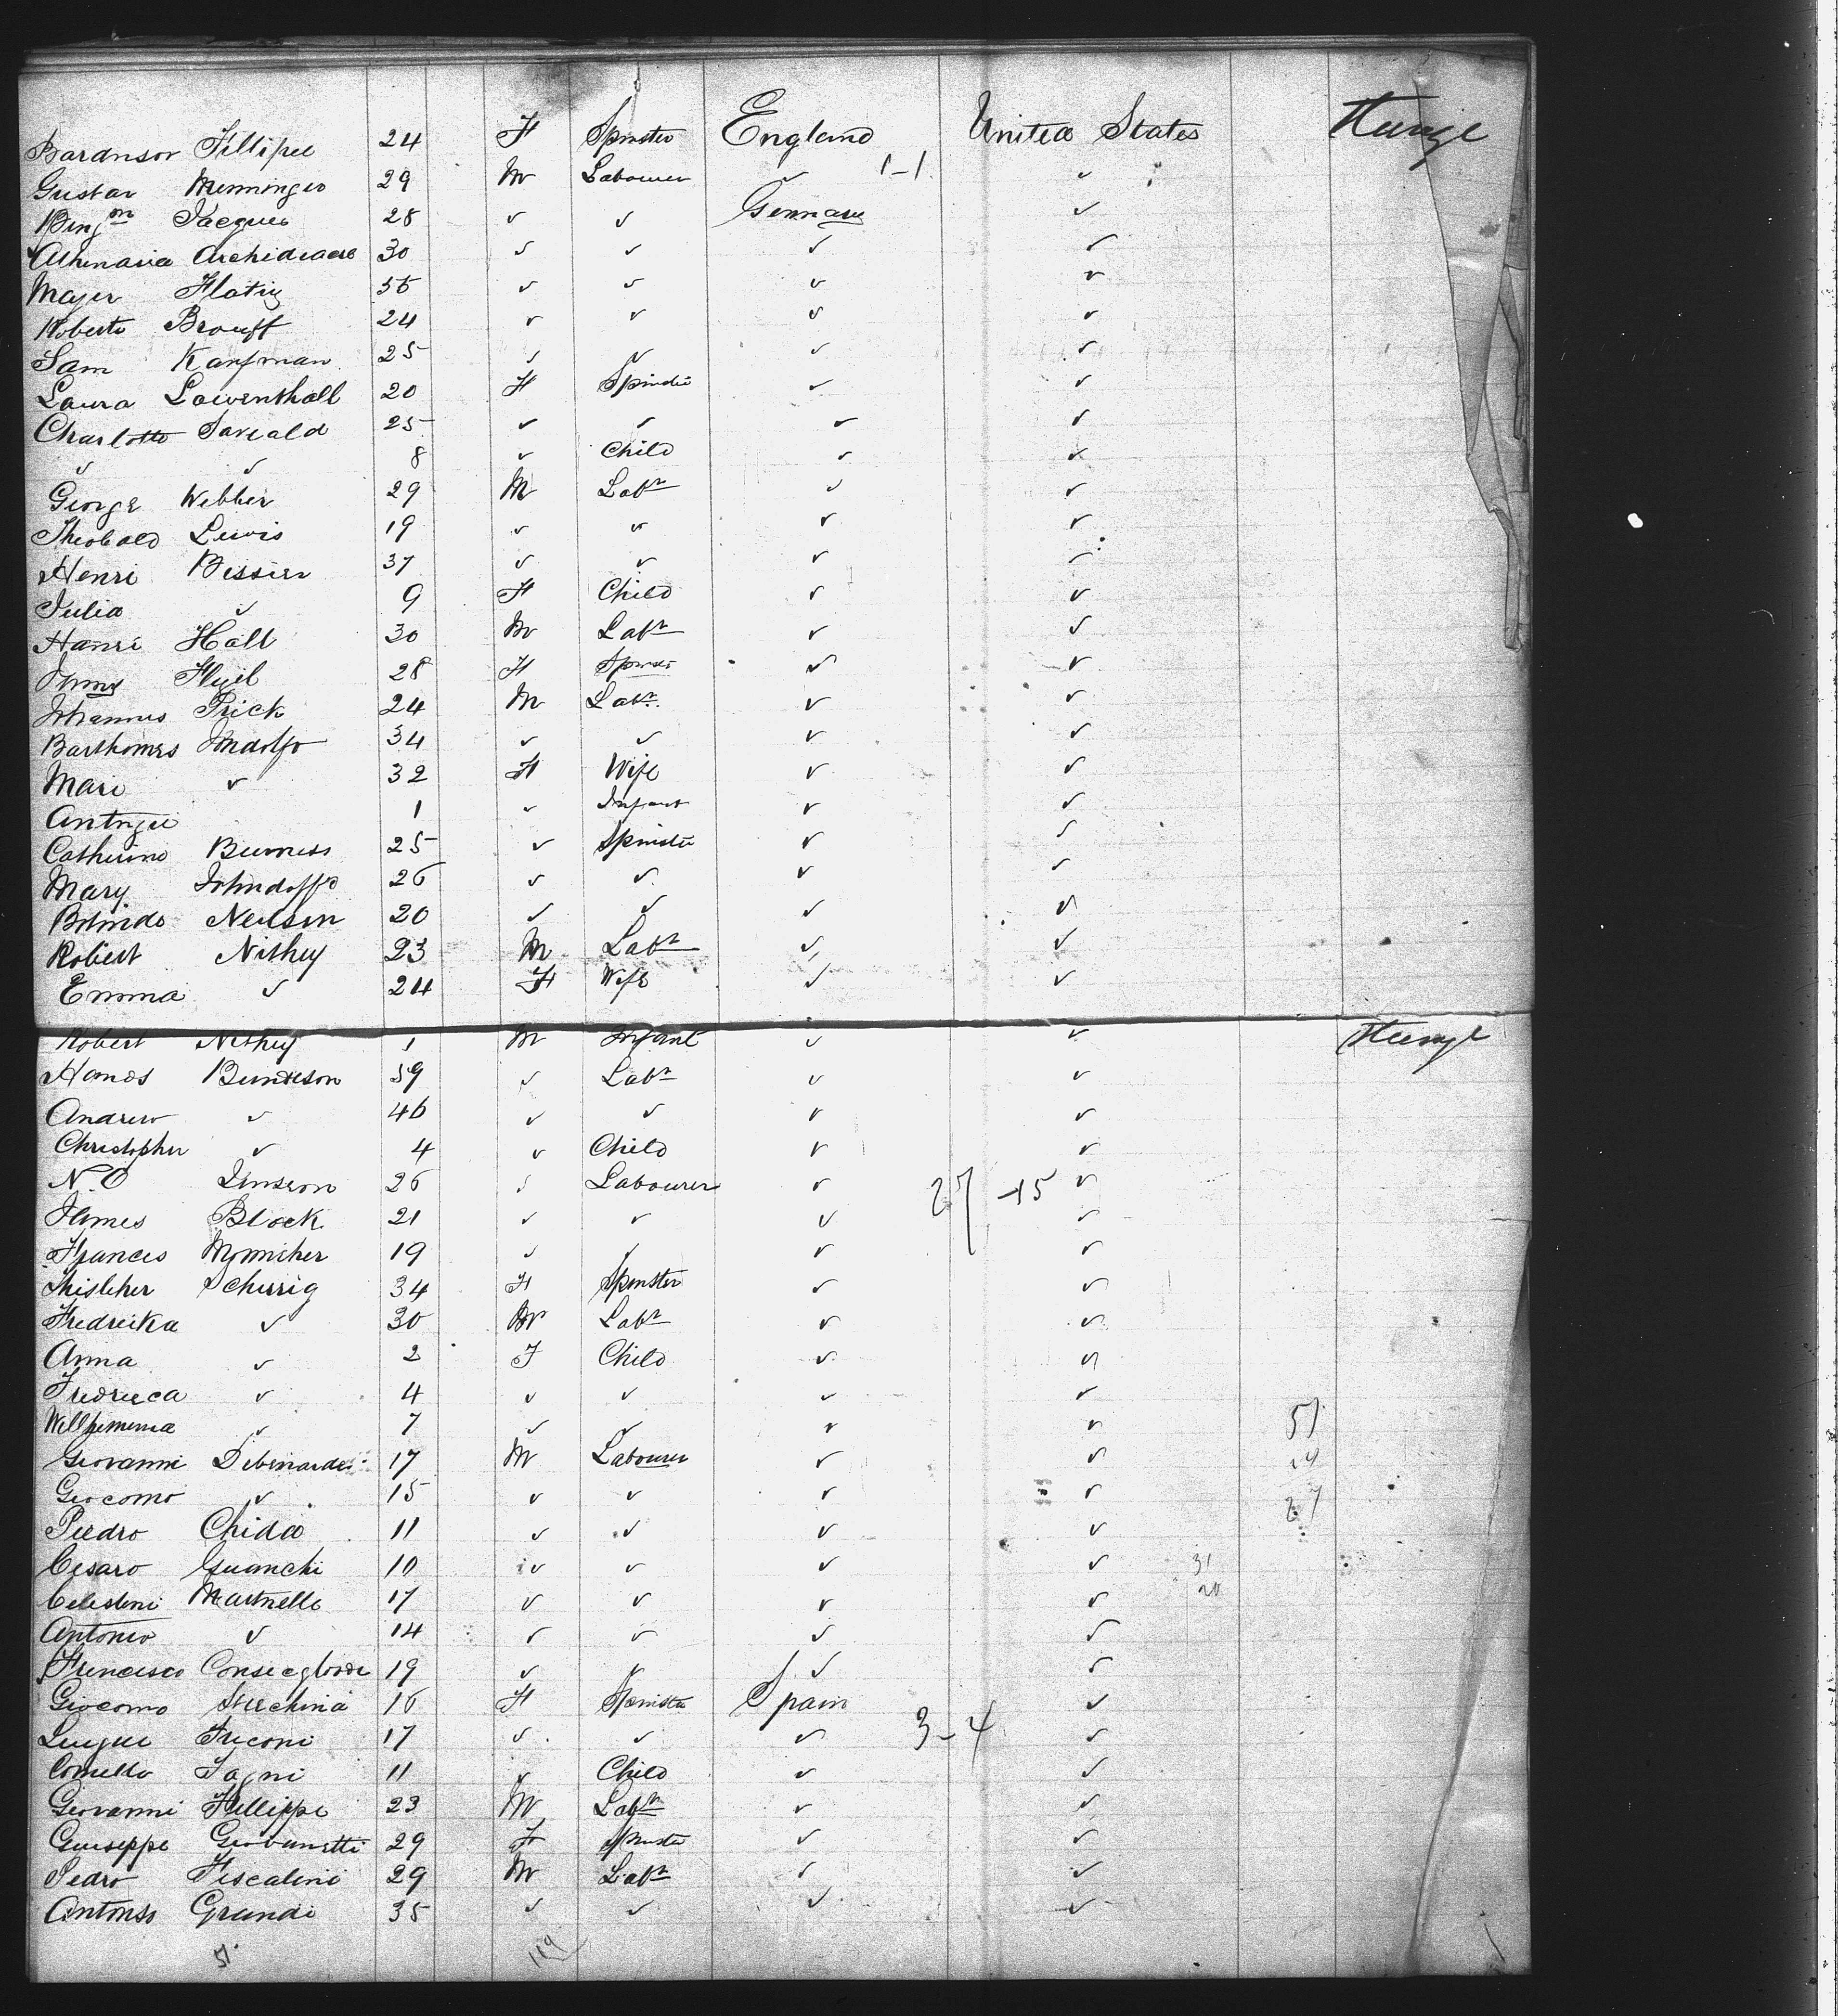 Bardnsor Fillipee 24 F Spinster England United States Steerage
Gustav Menninger 29 M Labourer ✓ 1-1 ✓
Benjmn Jacques 28 ✓ ✓ Germany ✓
Athenasia Archideacre 30 ✓ ✓ ✓ ✓
Mayer Flatig ✓ ✓ ✓ ✓
Roberto Brouff 24 ✓ ✓ ✓ ✓
Sam Kaufman 25 ✓ ✓ ✓ ✓
Laura Lowenthall 20 F Spinster ✓ ✓
Charlotte 25 ✓ ✓ ✓ ✓
✓ ✓ 8 ✓ Child ✓ ✓
George Webber 29 M Labr ✓ ✓
Theobald Lewis 19 ✓ ✓ ✓ ✓
Henri Bissier 37 ✓ ✓ ✓ ✓
Julia ✓ 9 F Child ✓ ✓
Hanri Hall 30 M Labr ✓ ✓
28 F Spinster ✓ ✓
Johannes Prick 24 M Labr ✓ ✓
Barthomes 34 ✓ ✓ ✓ ✓
Mari ✓ 32 F Wife ✓ ✓
1 ✓ Infant ✓ ✓
Catherine Burness 25 ✓ Spinster ✓ ✓
Mary 26 ✓ ✓ ✓ ✓
Neilson 20 ✓ ✓ ✓ ✓
Robert Nithey 23 M Labr ✓ ✓
Emma ✓ 24 F Wife ✓ ✓
Robert Nithey 1 M Infant ✓ ✓ Steerage
Hands Bundeson 59 ✓ Labr ✓ ✓
Andrew ✓ 46 ✓ ✓ ✓ ✓
Christopher ✓ 4 ✓ Child ✓ ✓
N.O 26 ✓ Labourer ✓ 27-15 ✓
James Block 21 ✓ ✓ ✓ ✓
Francis 19 ✓ ✓ ✓ ✓
Schurig 34 F Spinster ✓ ✓
Fredreika ✓ 30 M Labr ✓ ✓
Anna ✓ 2 F Child ✓ ✓
Fredreeca ✓ 4 ✓ ✓ ✓ ✓
Willhemenia ✓ 7 ✓ ✓ ✓ ✓ 51
Giovanni Debenarde 17 M Labourer ✓ ✓ 24
Giocomo ✓ 15 ✓ ✓ ✓ ✓ 27
Piedro Chida 11 ✓ ✓ ✓ ✓
Cesaro Guanchi 10 ✓ ✓ ✓ ✓ 31
Celesteni Martnelli 17 ✓ ✓ ✓ ✓ 20
Antonio ✓ 14 ✓ ✓ ✓ ✓
Francisco 19 ✓ ✓ ✓ ✓
Giocomo Sterchina 16 F Spinster Spain ✓
Luigui 17 ✓ ✓ ✓ 3-4 ✓
Cornello Tagni 11 ✓ Child ✓ ✓
Giovanni Fillippi 23 M Labr ✓ ✓
Guiseppe Giovanetti 29 F Spinster ✓ ✓
Pedro Fiscalini 29 M Labr ✓ ✓
Antonso Grandi 35 ✓ ✓ ✓ ✓
51 119